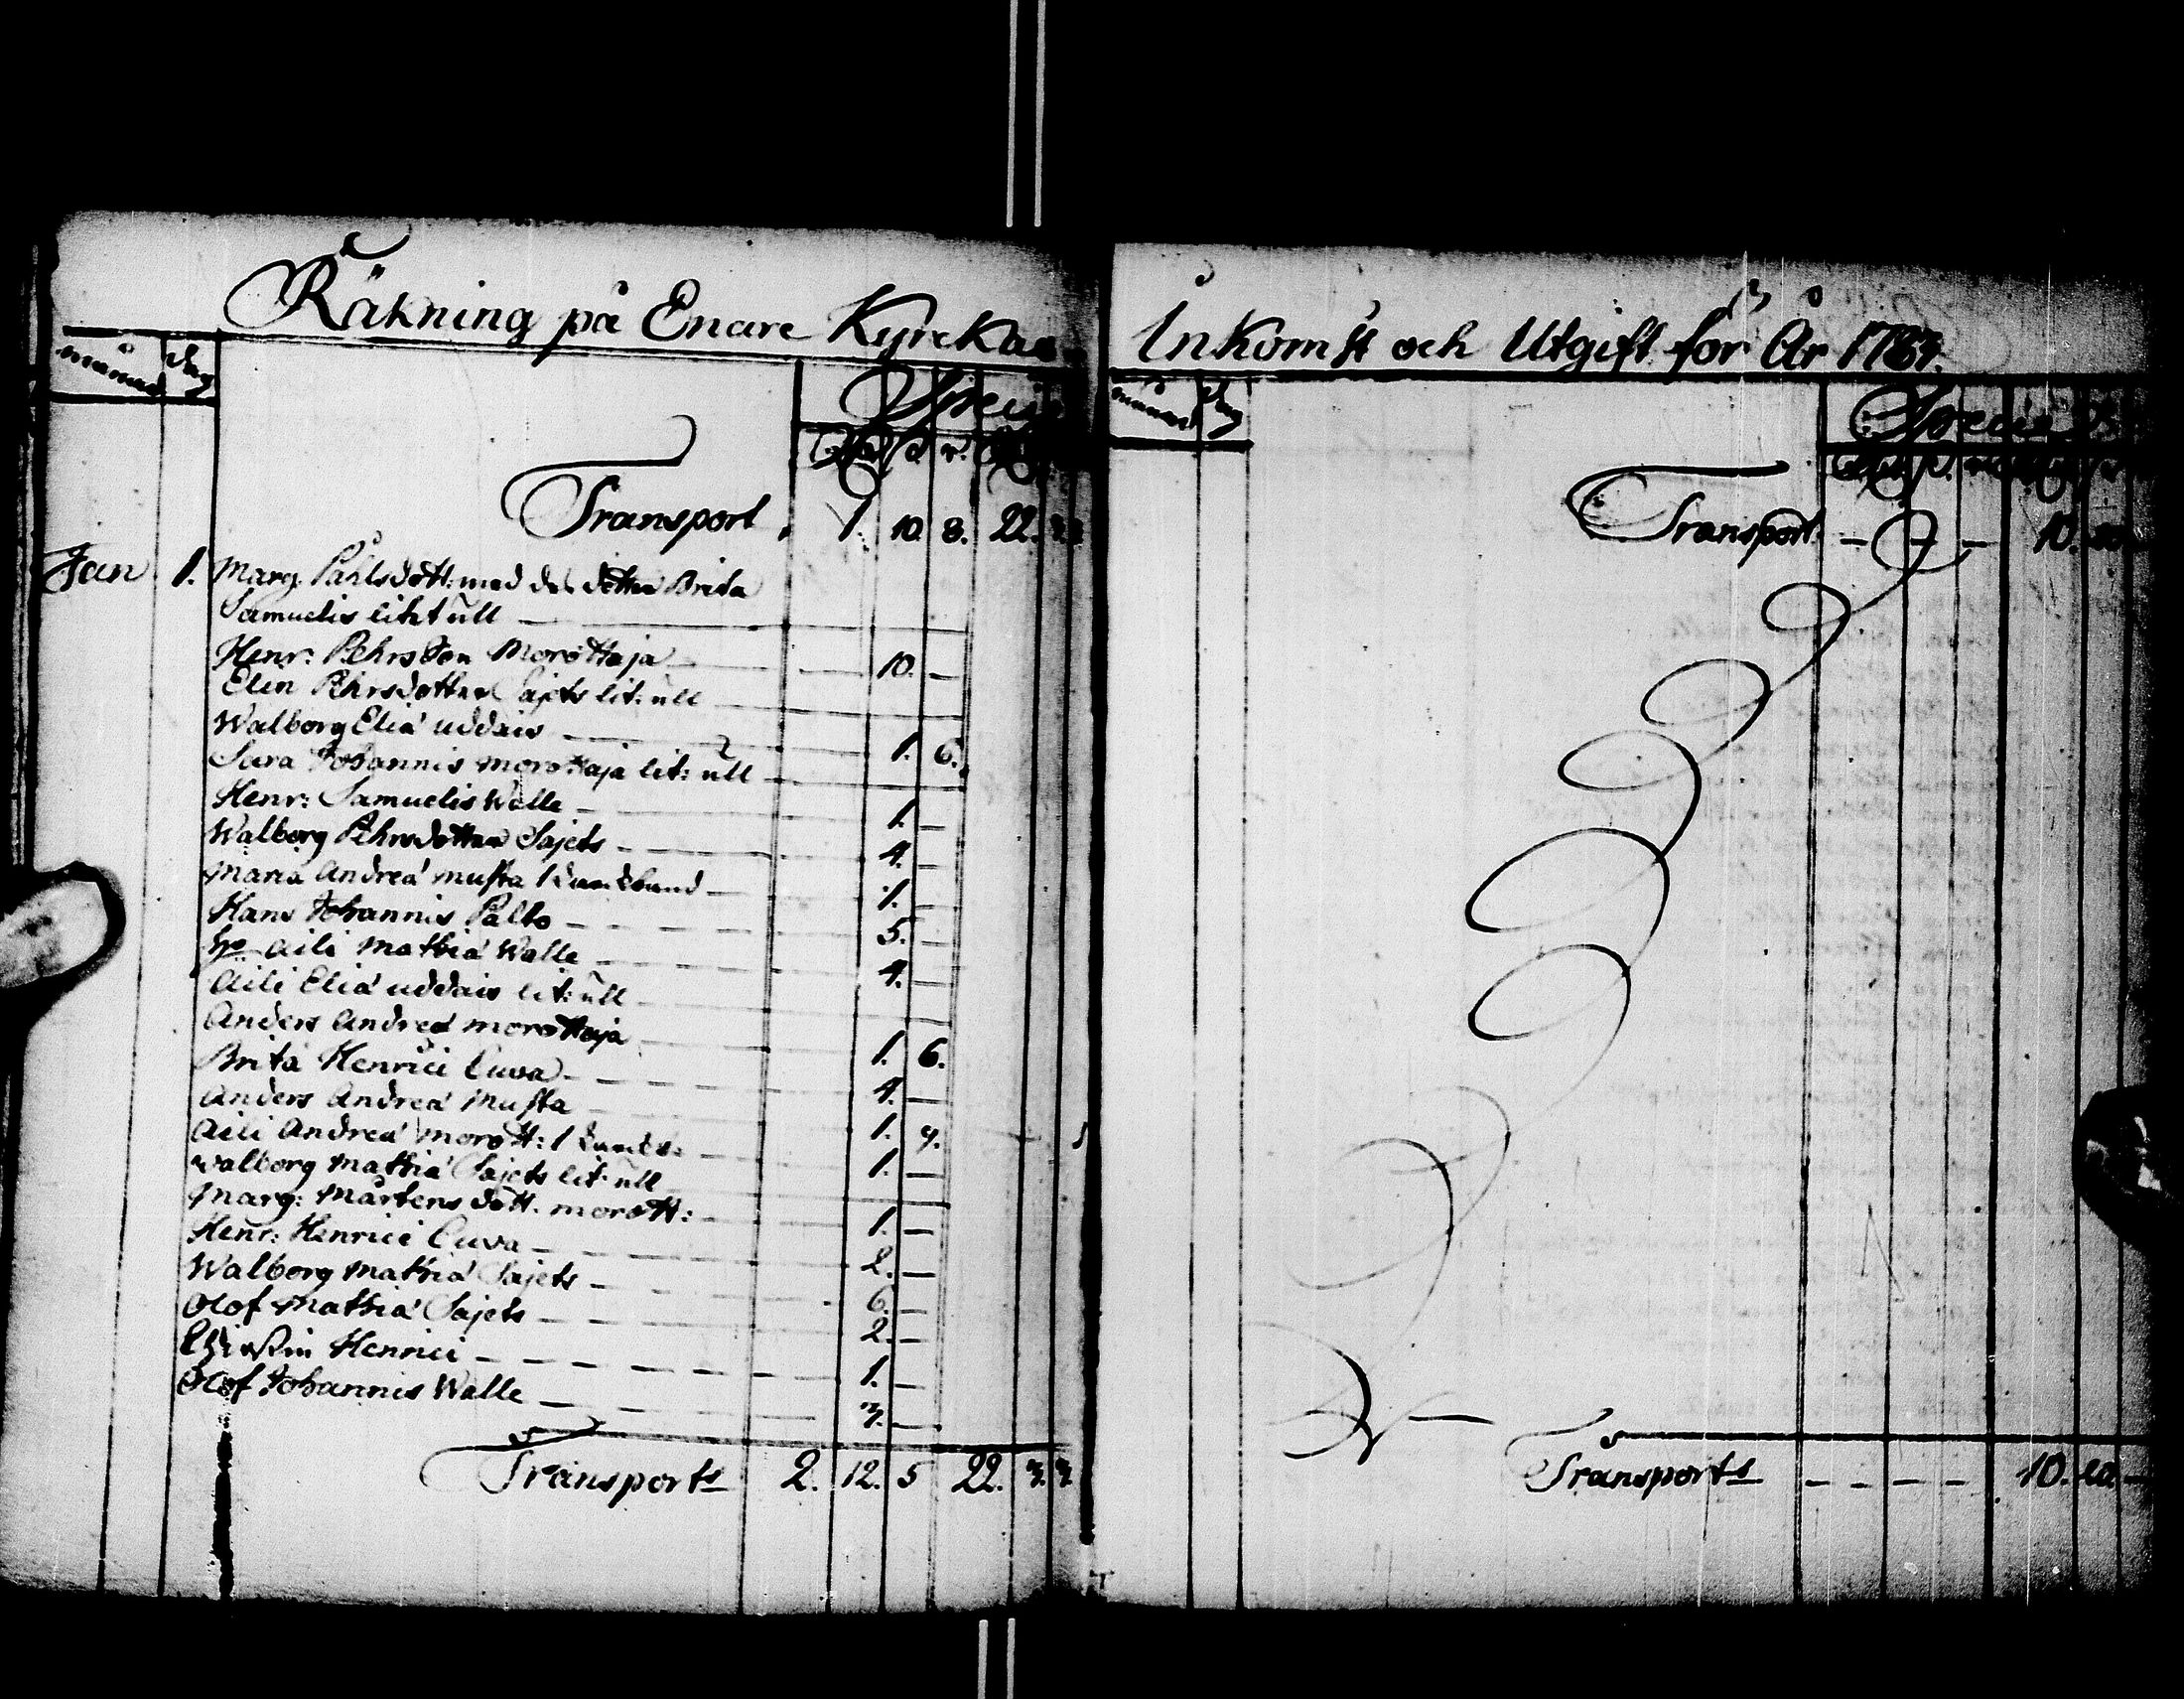 Räkning på Enare Kyrckas
månad Dag
Specie
Transport 1. 10. 8. 22.
Jan 1. Marg. Påhlsdott: med des dotter Brita
Samuelis litet ull
Henr: Pehrsson Morottaja 10. —
Elin Pehrsdotter Sajets lit: ull
Walborg Eliæ uddais 1. 6.
Sara Johannis morottaja lit: ull
Henr: Samuelis Walle 1. —
Walborg Pehrsdotter Sajets 4. —
Maria Andreæ musta 1 1. —
Hans Johannis Palto 5. —
Aili Mathiæ Walle 4. —
Aili Eliæ uddais lit: ull
Anders Andreæ morottaja 1. 6.
Brita Henrici Cuva 4. —
Anders Andreæ Musta 1. 4.
Aili Andreæ morott: 1 1. —
Walborg Mathiæ Sajets lit: ull
Marg: Mårtens dott. morott: 1. —
Henr: Henrici Cuva 2. —
Walborg Mathiæ Sajets 6. —
Olof Mathiæ Sajets 2. —
Christin Henrici 1. —
Olof Johannis Walle 3. —
Transport 2. 12. 5 22. 3. 3.
Inkomst och Utgift för År 1784.
månad Dag
Specie
Transport — — — 10.
Transport — — — — 10. 20. —